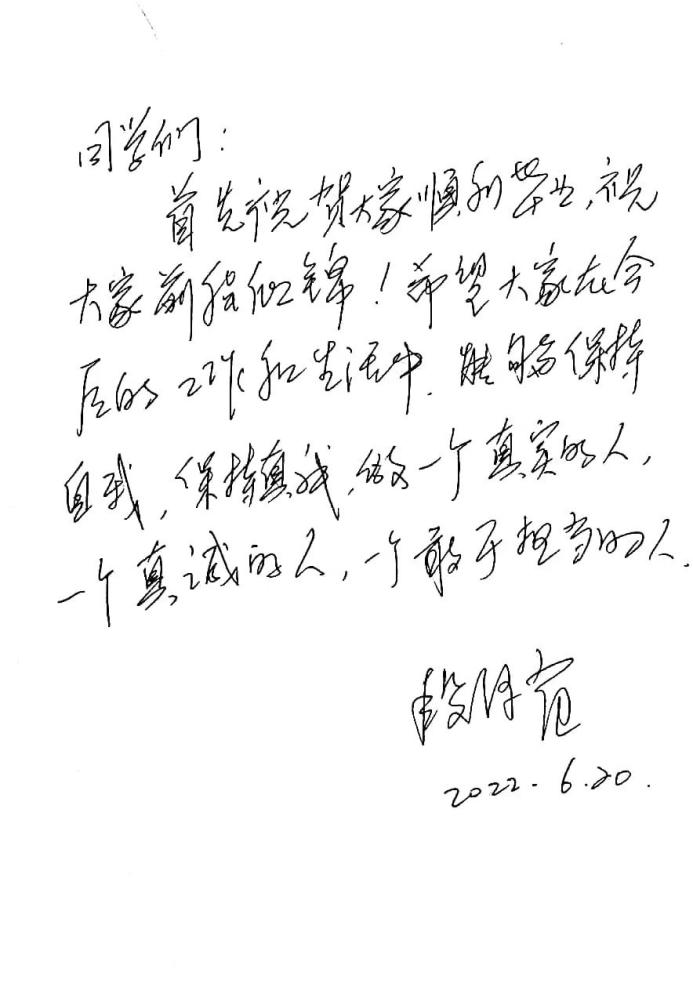 同学们：
首先祝贺大家顺利毕业，祝
大家前程似锦！希望大家在今
后的工作和生活中，能够保持
自我，保持真我，做一个真实的人，
一个真诚的人，一个敢于担当的人。
段
2022.6.20.